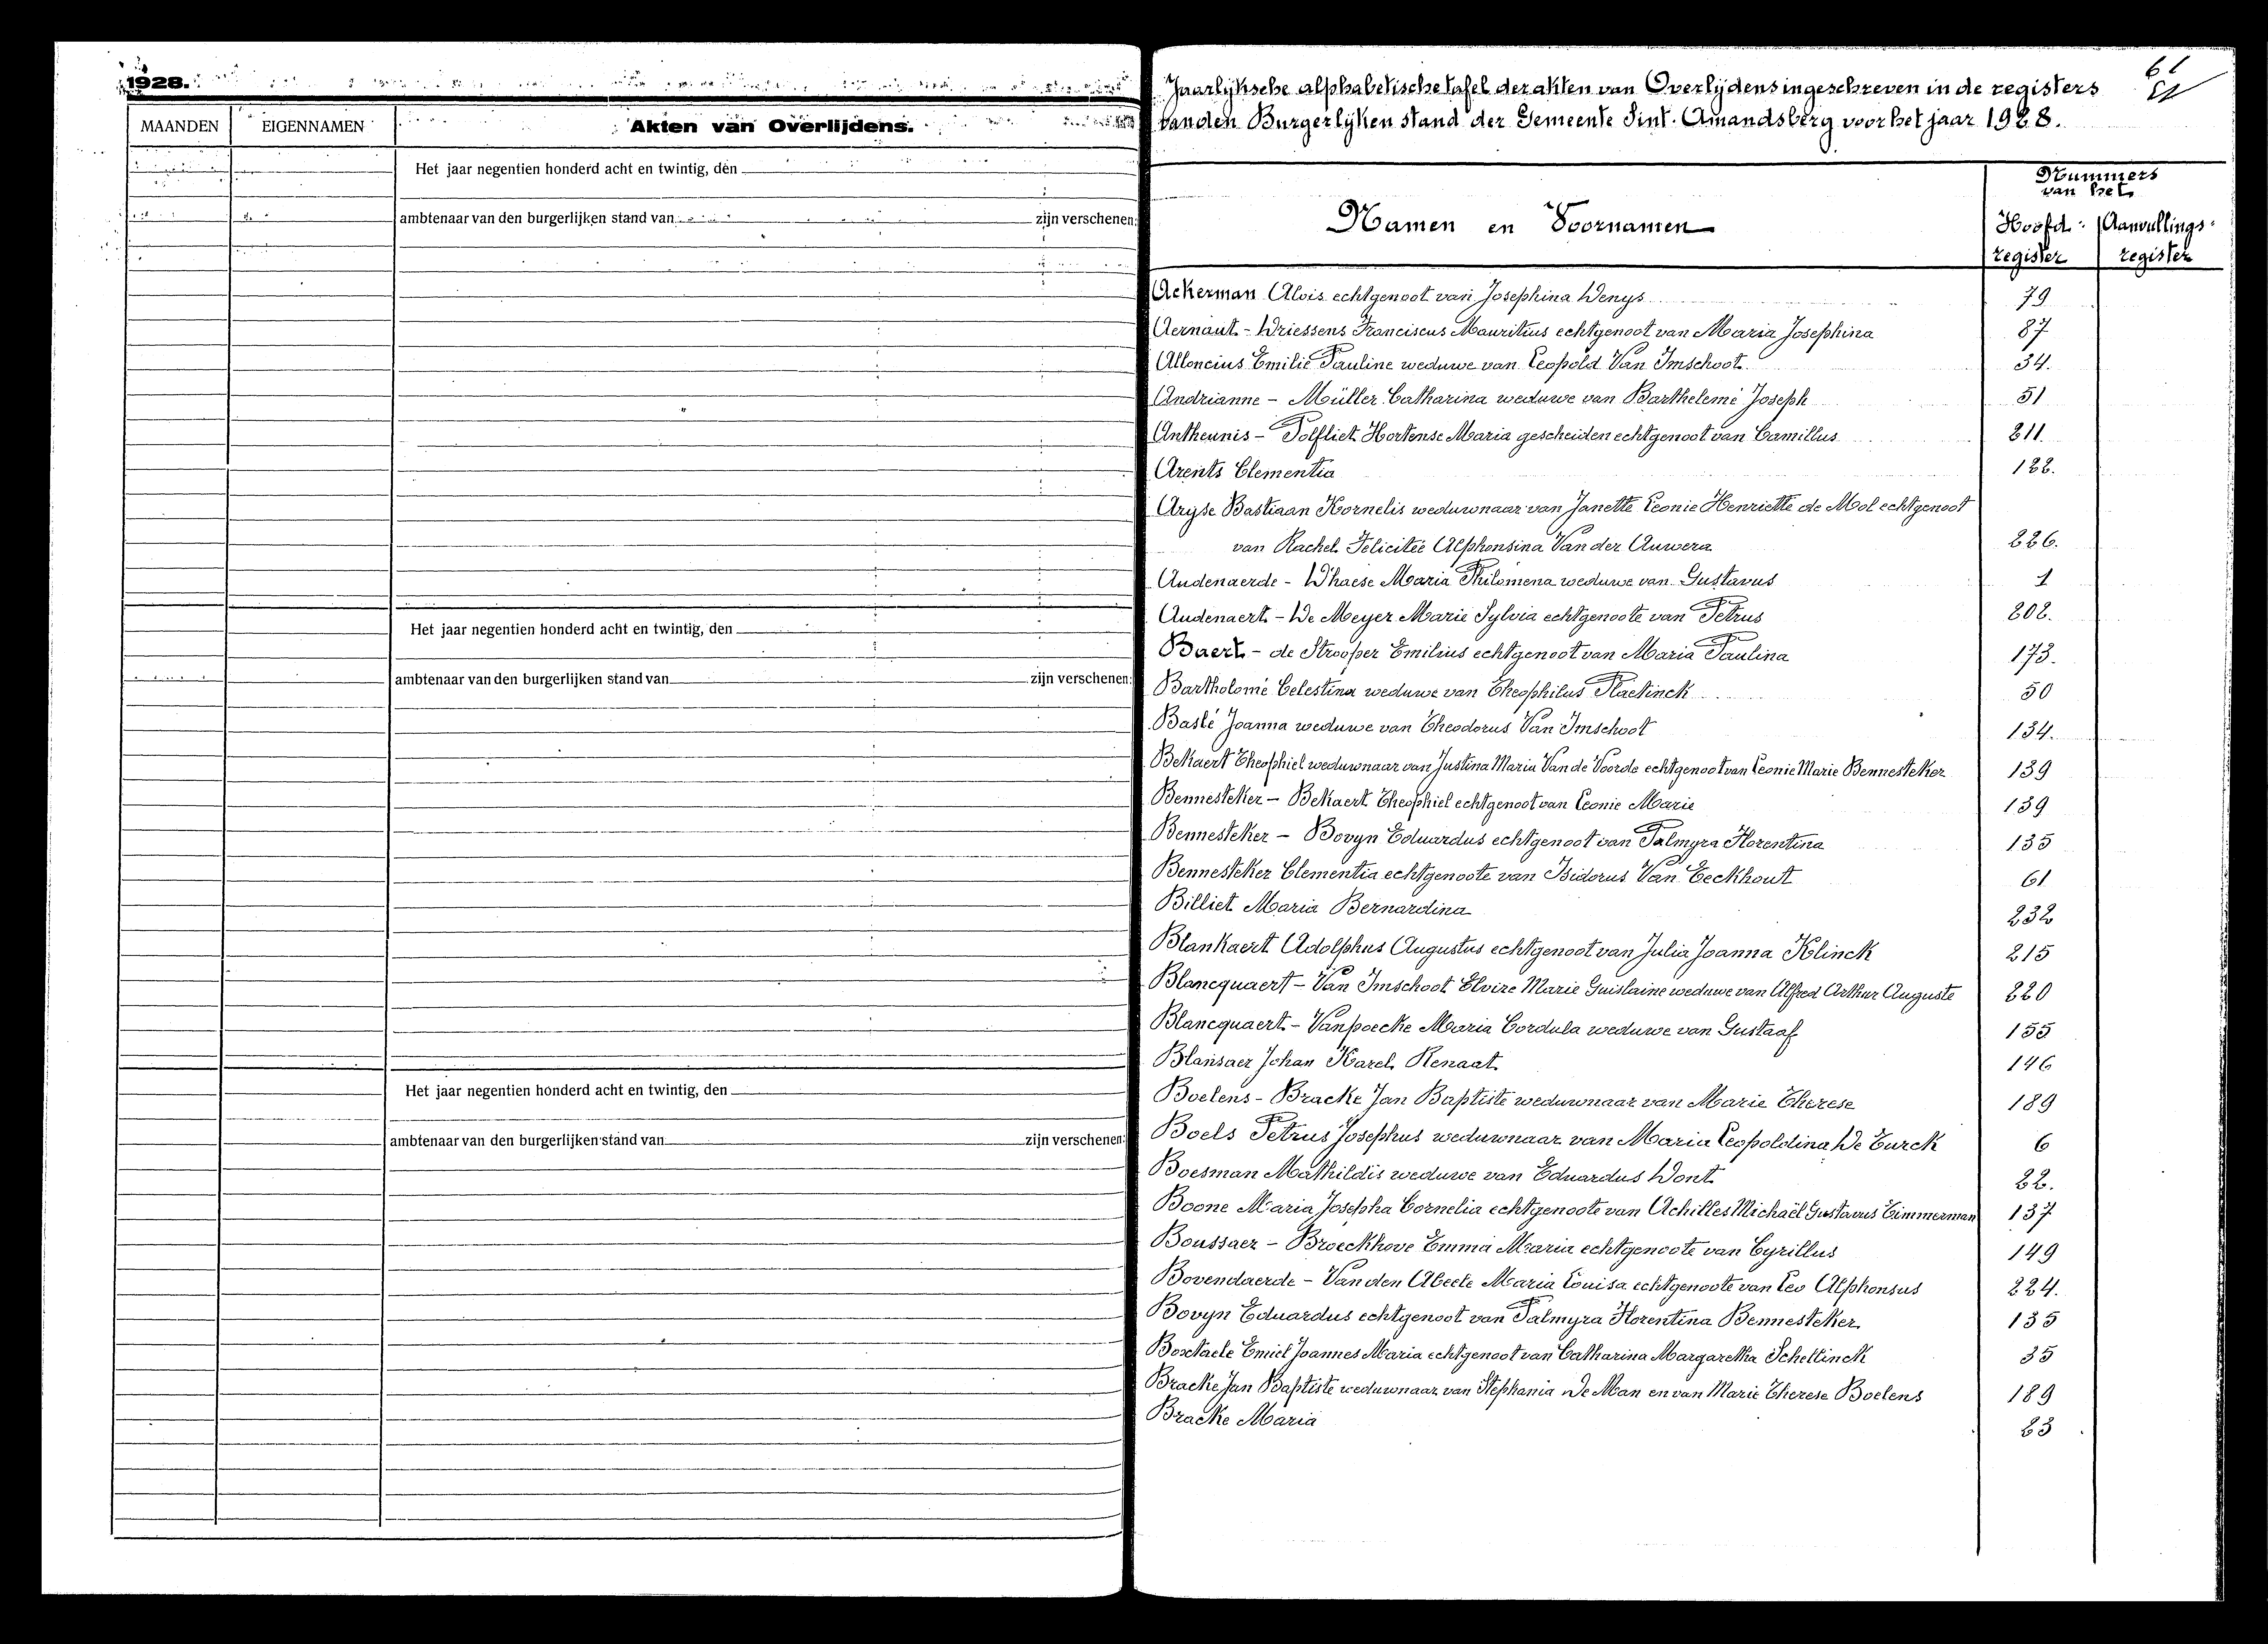 1928.
MAANDEN EIGENNAMEN Akten van Overlijdens.
Het jaar negentien honderd acht en twintig, den
ambtenaar van den burgerlijken stand van zijn verschenen:
Het jaar negentien honderd acht en twintig, den
ambtenaar van den burgerlijken stand van zijn verschenen:
Het jaar negentien honderd acht en twintig, den
ambtenaar van den burgerlijken stand van zijn verschenen:
61
Jaarlijksche alphabetische tafel der akten van Overlijdens ingeschreven in de registers
van den Burgerlijken stand der Gemeente Sint. Amandsberg voor het jaar 1928.
Nummers
van het
Namen en Voornamen Hoofd: Aanvullings:
register register
Ackerman Alois echtgenoot van Josephina Denys 79
Aernaut - Driessens Franciscus Mauritius echtgenoot van Maria Josephina 87
Alloncius Emilie Pauline weduwe van Leopold Van Imschoot 34.
Andrianne - Müller Catharina weduwe van Barthelemé Joseph 51
Antheunis - Polfliet Hortense Maria gescheiden echtgenoot van Camillus 211.
Arents Clementia 122.
Aryse Bastiaan Kornelis weduwnaar van Janette Leonie Henriette de Mol echtgenoot
van Rachel Felicitée Alphonsina Van der Auwera 226.
Audenaerde - D'haese Maria Philomena weduwe van Gustavus 1
Audenaert - De Meyer Marie Sylvia echtgenoote van Petrus 202.
Baert - de Strooper Emilius echtgenoot van Maria Paulina 173.
Bartholomé Celestina weduwe van Theophilus Plaetinck 50
Baslé Joanna weduwe van Theodorus Van Imschoot 134.
Bekaert Theophiel weduwnaar van Justina Maria Van de Voorde echtgenoot van Leonie Marie Bennesteker 139
Bennesteker - Bekaert Theophiel echtgenoot van Leonie Marie 139
Bennesteker - Bovyn Eduardus echtgenoot van Palmyra Florentina 135
Bennesteker Clementia echtgenoote van Isidorus Van Eeckhout 61
Billiet Maria Bernardina 232
Blankaert Adolphus Augustus echtgenoot van Julia Joanna Klinck 215
Blancquaert - Van Imschoot Elvire Marie Guislaine weduwe van Alfred Arthur Auguste 220
Blancquaert - Vanpoecke Maria Cordula weduwe van Gustaaf 155
Blansaer Johan Karel Renaat 146
Boelens - Bracke Jan Baptiste weduwnaar van Marie Therese 189
Boels Petrus Josephus weduwnaar van Maria Leopoldina De Turck 6
Boesman Mathildis weduwe van Eduardus Dont 22.
Boone Maria Josepha Cornelia echtgenoote van Achilles Michaël Gustavus Timmerman 137
Boussaer - Broeckhove Emma Maria echtgenoote van Cyrillus 149
Bovendaerde - Van den Abeele Maria Louisa echtgenoote van Leo Alphonsus 224.
Bovyn Eduardus echtgenoot van Palmyra Florentina Bennesteker 135
Boxstaele Emiel Joannes Maria echtgenoot van Catharina Margaretha Schellinck 35
Bracke Jan Baptiste weduwnaar van Stephania De Man en van Marie Therese Boelens 189
Bracke Maria 23